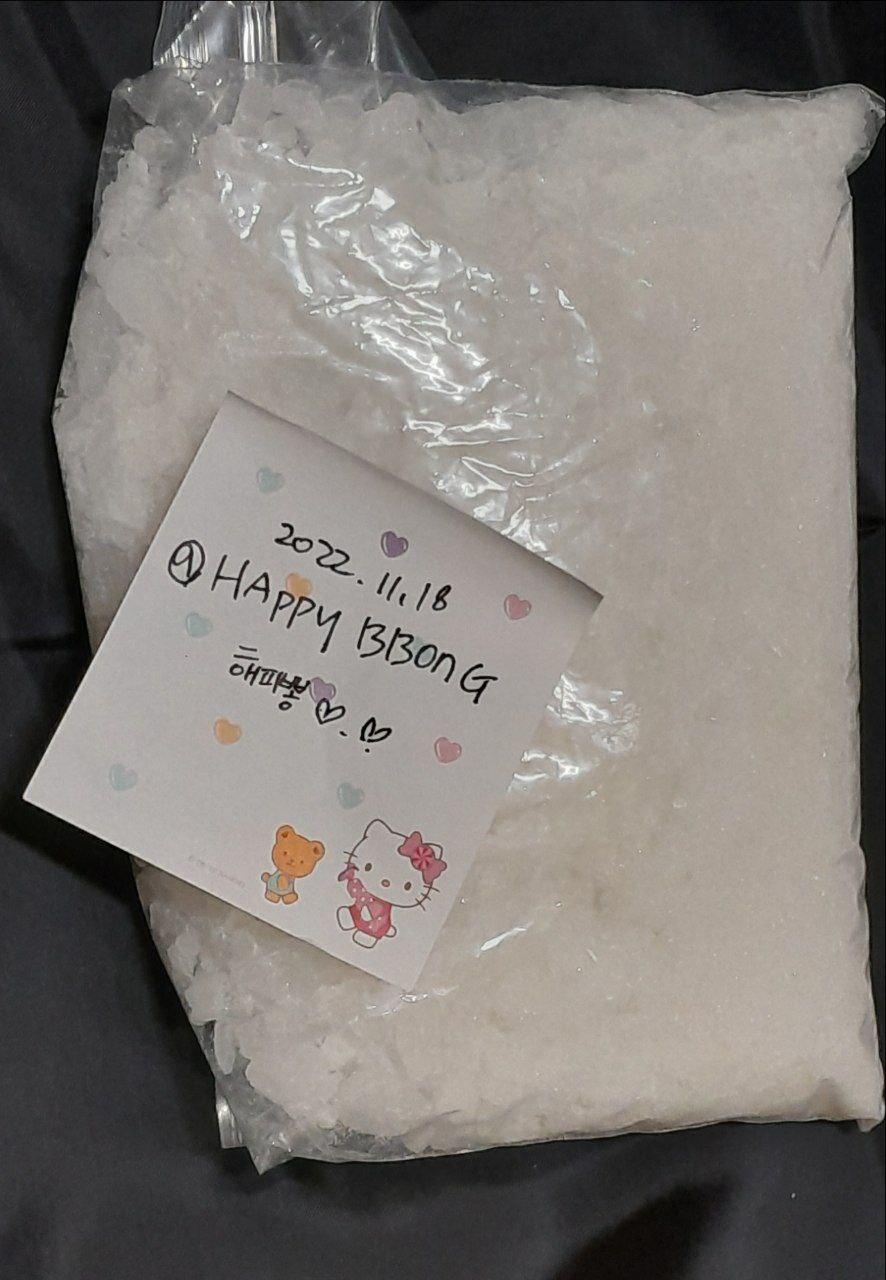 2022.11.18
@HAPPY BBONG
해피뽕 ♡.♡